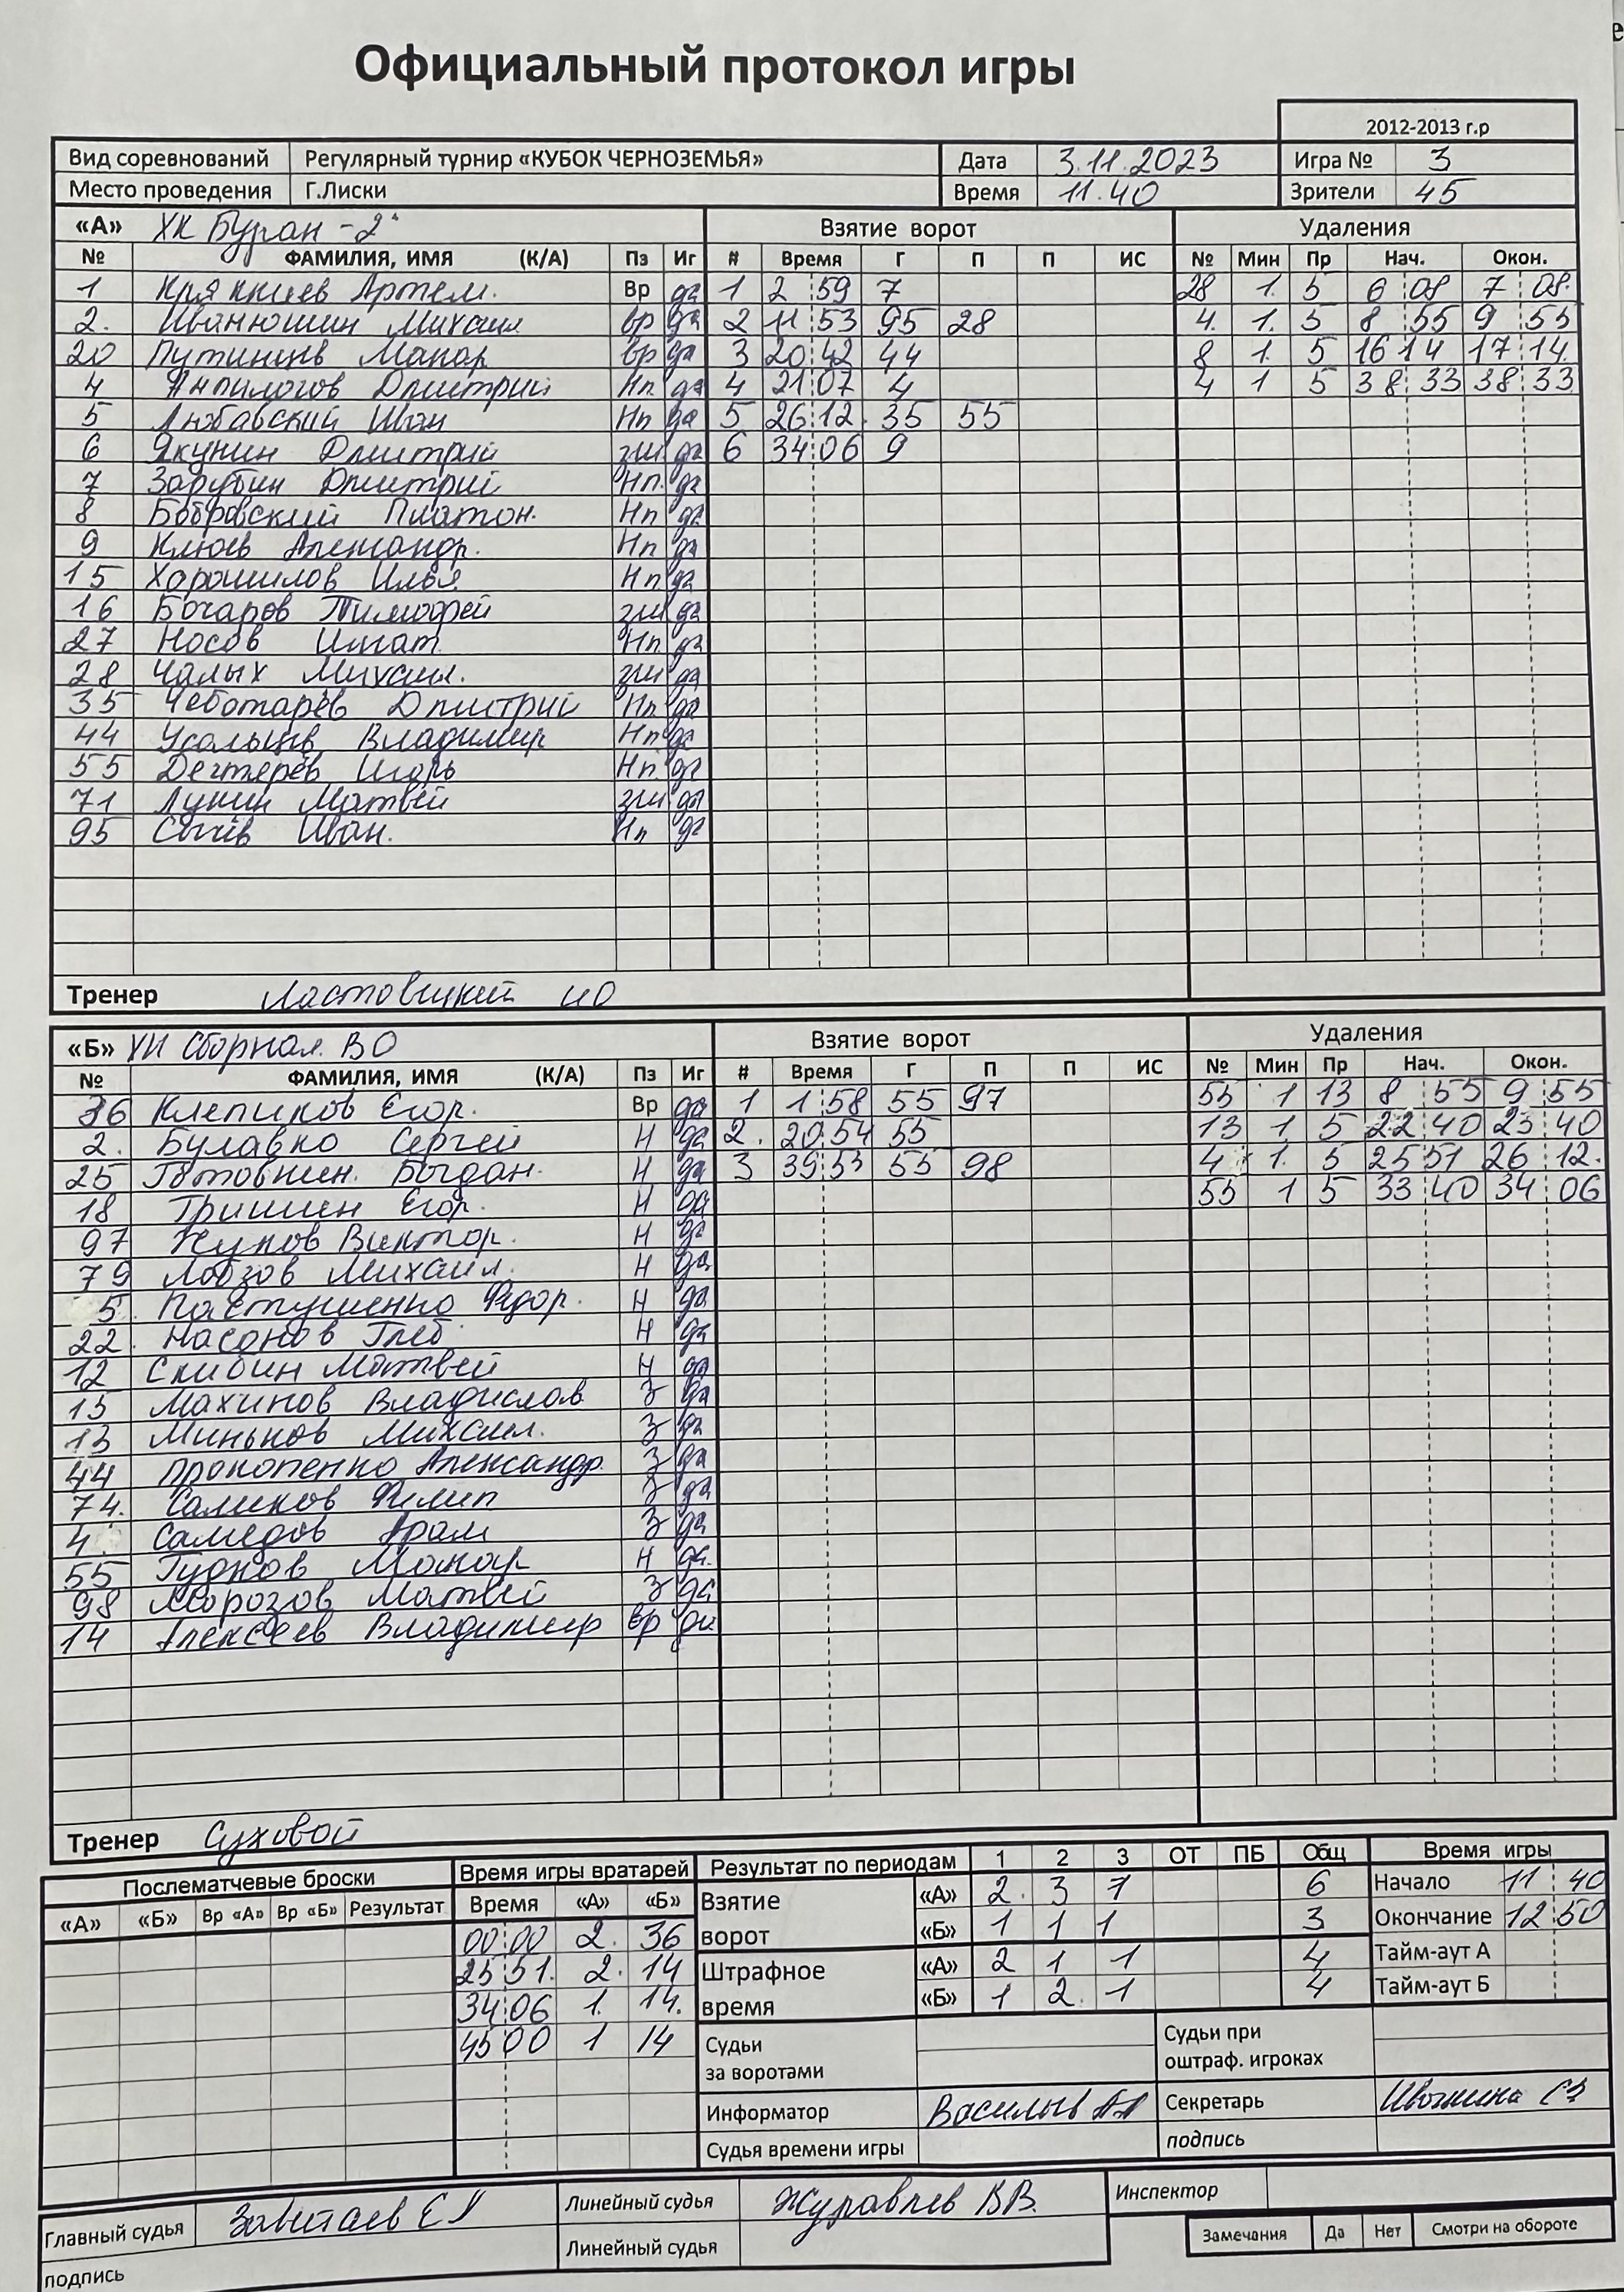 Официальный протокол игры
2012-2013 г.р
Вид соревнований Регулярный турнир «КУБОК ЧЕРНОЗЕМЬЯ» Дата 3.11.2023 Игра № 3
Место проведения Г.Лиски Время 11.40 Зрители 45
«А» ХК Буран-2 Взятие ворот Удаления
№ ФАМИЛИЯ, ИМЯ (К/А) Пз Иг # Время Г П П ИС № Мин Пр Нач. Окон.
1 Артем. Вр да 1 2 59 7 28 1. 5 6 08 7 08.
2. Иванюшин Михаил вр да 2 11 53 95 28 4. 1. 5 8 55 9 55
20 Путинцев Макар вр да 3 20 42 44 8 1. 5 16 14 17 14.
4 Анпилогов Дмитрий Нп. да 4 21 07 4 4 1 5 38 33 38 33
5 Любавский Иван Нп да 5 26 12. 35 55
6 Якунин Дмитрий защ да 6 34 06 9
7 Зарубин Дмитрий Нп. да
8 Бобровский Платон. Нп да
9 Клюев Александр. Нп да
15 Харошилов Илья Нп да
16 Бочаров Тимофей защ да
27 Носов Игнат Нп да
28 Чалых Михаил. защ да
35 Чеботарёв Дмитрий Нп. да
44 Усольцев Владимир Нп да
55 Дегтерёв Игорь Нп. да
71 Лунин Матвей защ да
95 Сычёв Иван. Нп да
Тренер Ластовецкий
«Б» ХК Сборная. ВО Взятие ворот Удаления
№ ФАМИЛИЯ, ИМЯ (К/А) Пз Иг # Время Г П П ИС № Мин Пр Нач. Окон.
36 Клепиков Егор. Вр да 1 1 58 55 97 55 1 13 8 55 9 55
2. Булавко Сергей Н да 2. 20 54 55 13 1. 5 22 40 23 40
25 Готовкин. Богдан. Н да 3 39 53 55 98 4 1. 5 25 51 26 12.
18 Гришин Егор. Н да 55 1 5 33 40 34 06
97 Жуков Виктор. Н да
79 Лобзов Михаил. Н да
5. Пастушенко Фёдор. Н да
22. Насонов Глеб Н да
12 Скибин Матвей Н да
15 Махинов Владислав З да
13 Миньков Михаил. З да
44 Прокопенко Александр. З да
74. Саликов Филип З да
4 Самедов Арам З да
55 Гудков Макар Н да.
98 Морозов Матвей З да
14 Алексеев Владимир Вр да
Тренер Суховой
Послематчевые броски Время игры вратарей Результат по периодам 1 2 3 ОТ ПБ Общ Время игры
«А» «Б» Вр «А» Вр «Б» Результат Время «А» «Б» Взятие ворот «А» 2. 3 1 6 Начало 11 40
00 00 2. 36 «Б» 1 1 1 3 Окончание 12 50
25 51. 2. 14 Штрафное время «А» 2 1 1 4 Тайм-аут А
34 06 1. 14. «Б» 1 2. 1 4 Тайм-аут Б
45 00 1 14 Судьи за воротами Судьи при оштраф. игроках
Информатор Васильев Секретарь
Судья времени игры подпись
Главный судья Линейный судья Журавлев В.В. Инспектор
подпись Линейный судья Замечания Да Нет Смотри на обороте